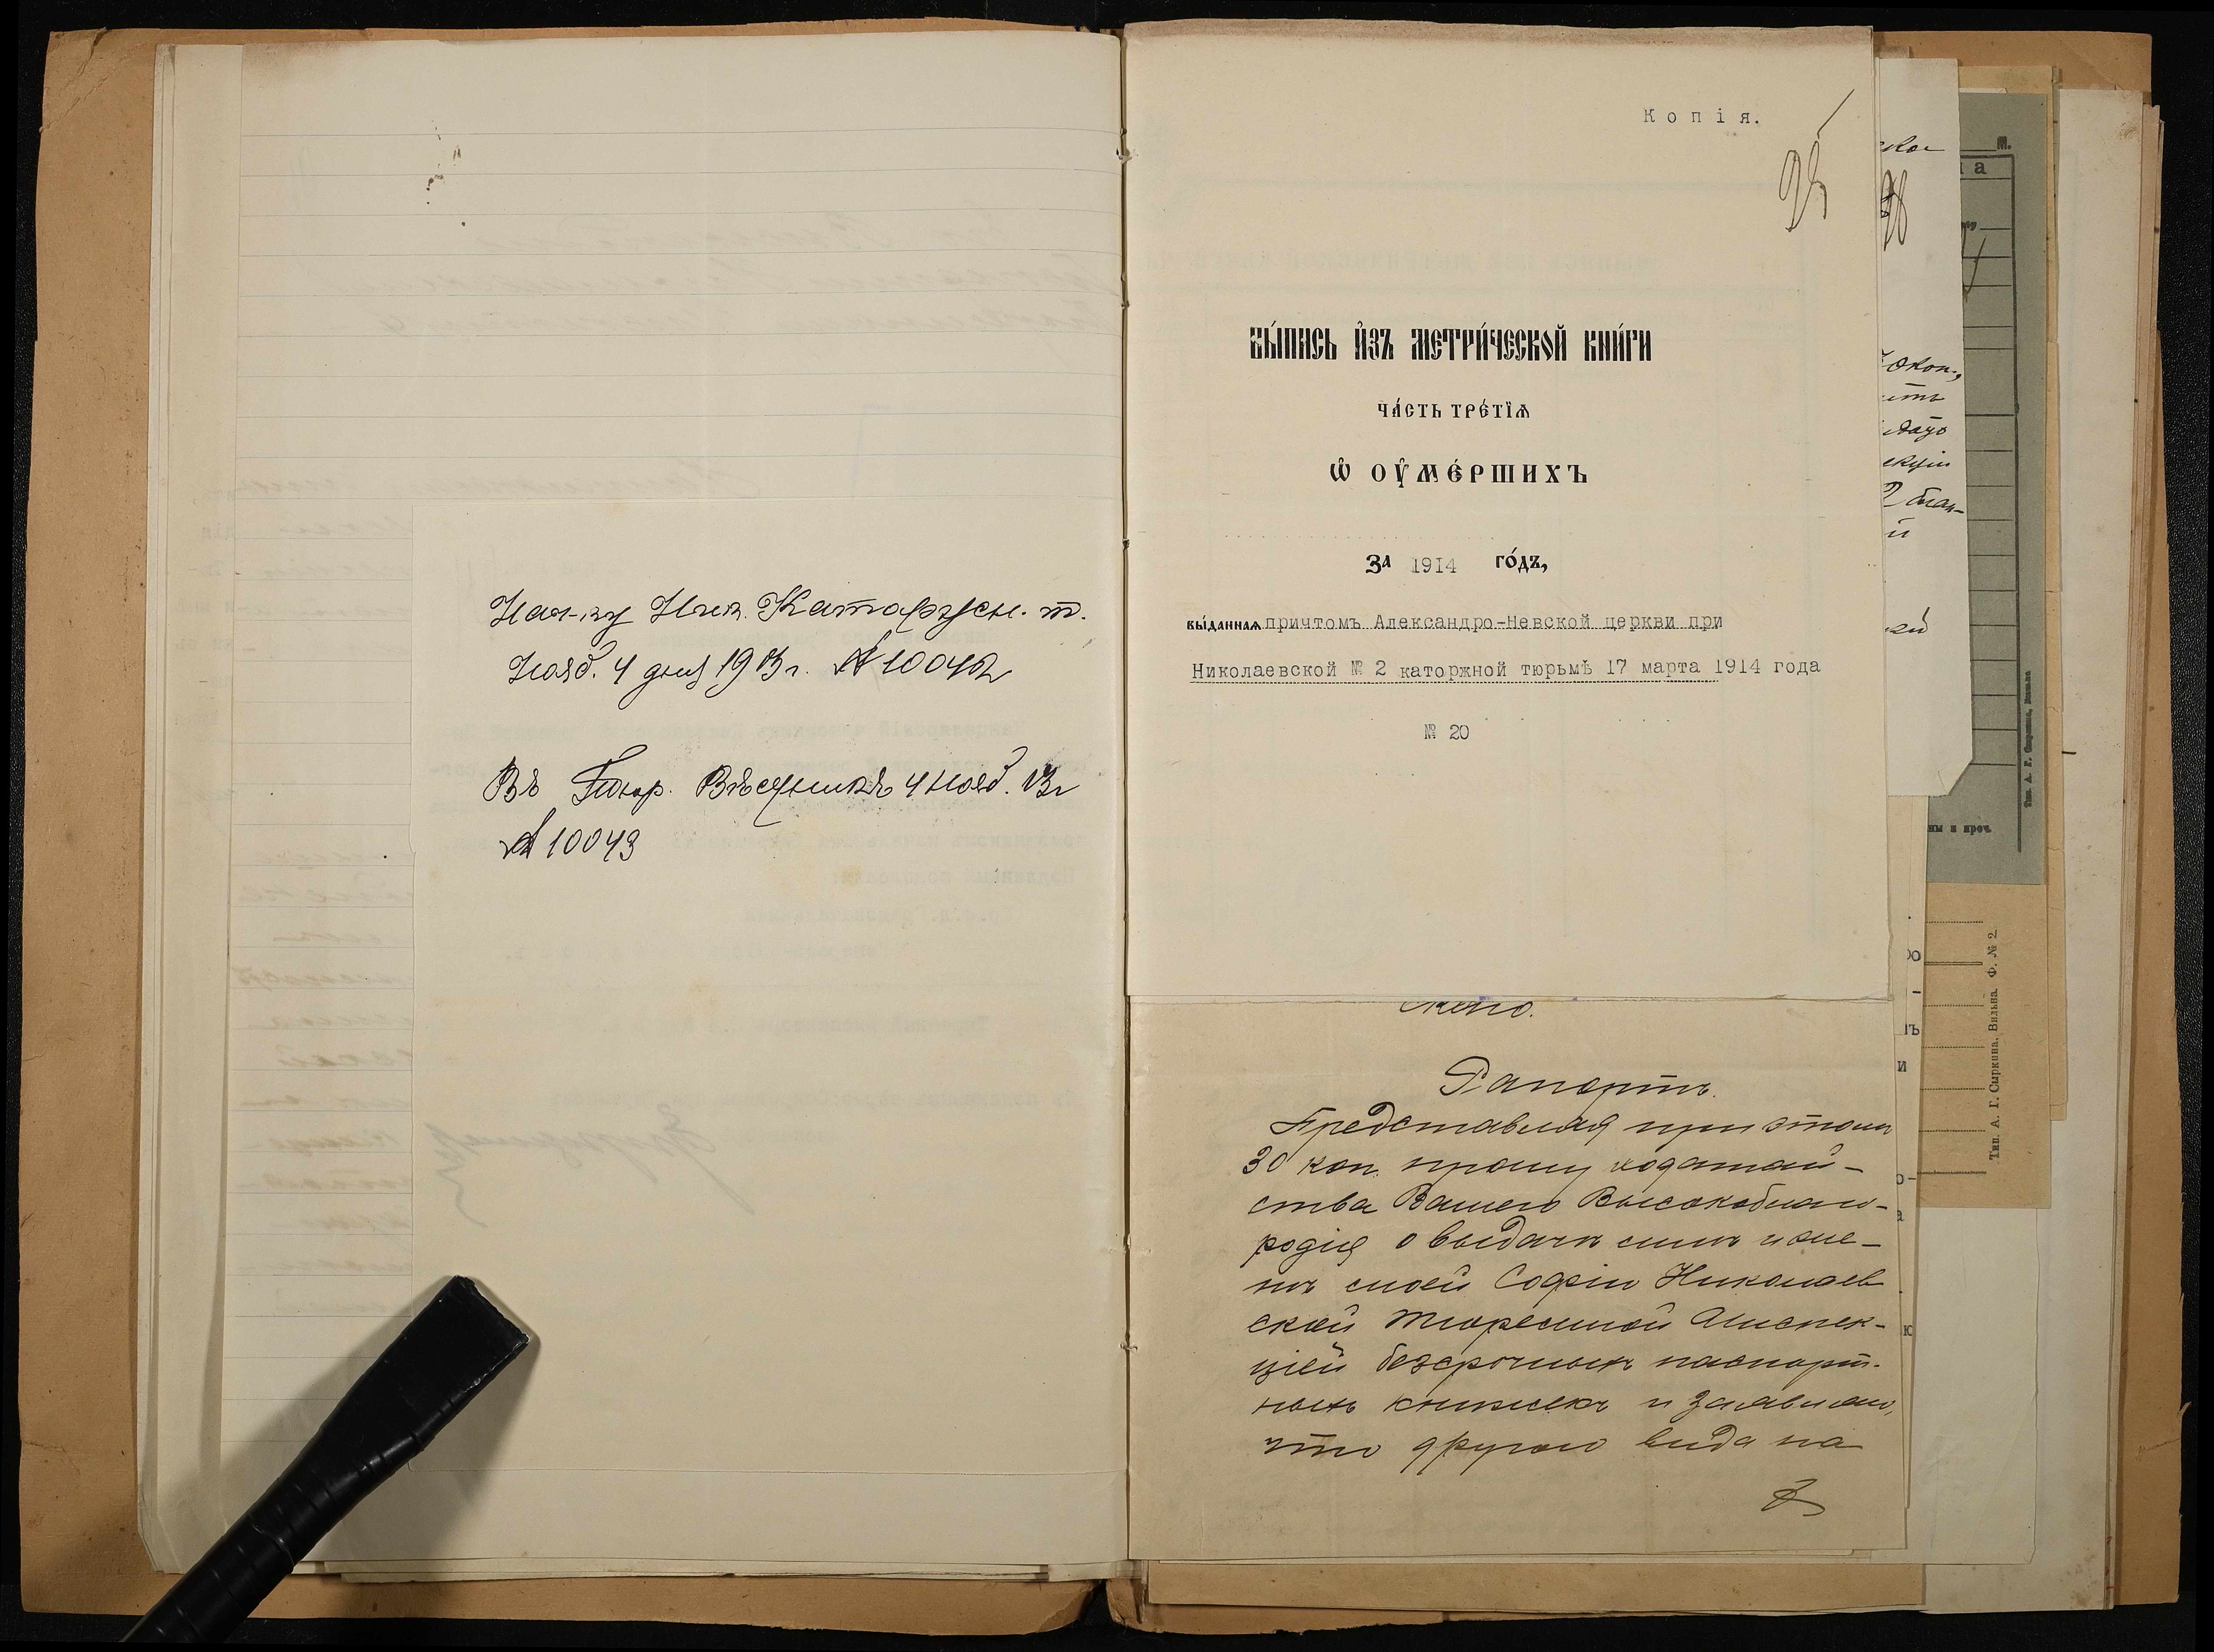 Нач-ку Ник. Каторжн. т.
Нояб. 4 дня 1913 г. № 10042
Въ Тюр. Вѣстникъ 4 нояб. 13 г
№ 10043
Копія.
95
вы́пись и҆зъ метри́ческой кни́ги
ча́сть тре́тїѧ
ѡ҆ оу҆ме́ршихъ
за 1914 го́дъ,
вы́даннаѧ причтомъ Александро-Невской церкви при
Николаевской № 2 каторжной тюрьмѣ 17 марта 1914 года
№ 20
Рапортъ.
Представляя при этомъ
30 коп. прошу ходатай-
ства Вашего Высокоблаго-
родія о выдачѣ мнѣ и же-
нѣ моей Софіи Николаев
ской Тюремной Инспек-
ціей безсрочныхъ паспорт-
ныхъ книжекъ и заявляю,
что другого вида на
ской
м.
на
98
экон.,
екціи
благ-
й
ны и проч.
Тип. А. Г. Сыркина, Вильна
Тип. А. Г. Сыркина, Вильна. Ф. № 2.